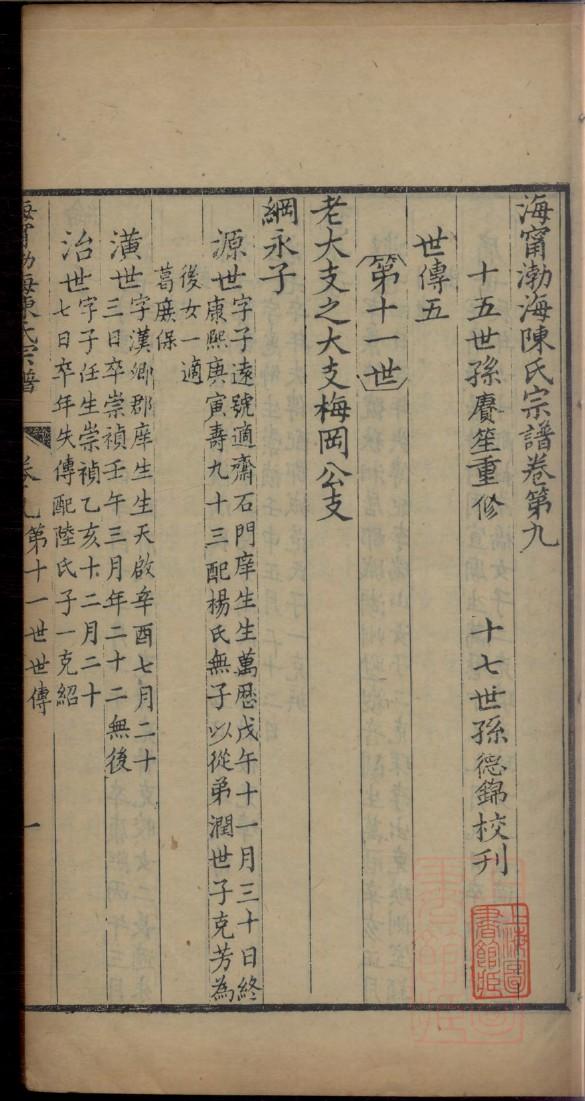 海甯渤海陳氏宗譜卷第九
十五世孫賡笙重修　十七世孫德錦校刊
世傳五
第十一世
老大支之大支梅岡公支
綱永子
源世字子遠號適齋石門庠生生萬歷戊午十一月三十日終
康熙庚寅壽九十三配楊氏無子以從弟潤世子克芳為
後女一適
葛廣保
潢世字漢卿郡庠生生天啟辛酉七月二十
三日卒崇禎壬午三月年二十二無後
治世字子任生崇禎乙亥十二月二十
七日卒年失傳配陸氏子一克紹
海甯渤海陳氏宗譜　卷第九第十一世世傳　一
上海圖書館藏